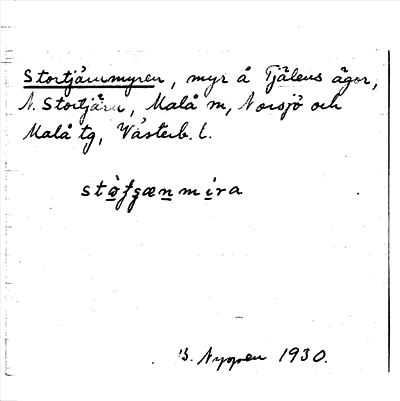 Stortjärnmyren, myr å Tjälens ägor,
N. Stortjärn, Malå sn, Norsjö och
Malå tg, Västerb. l.
B. Nygren 1930.